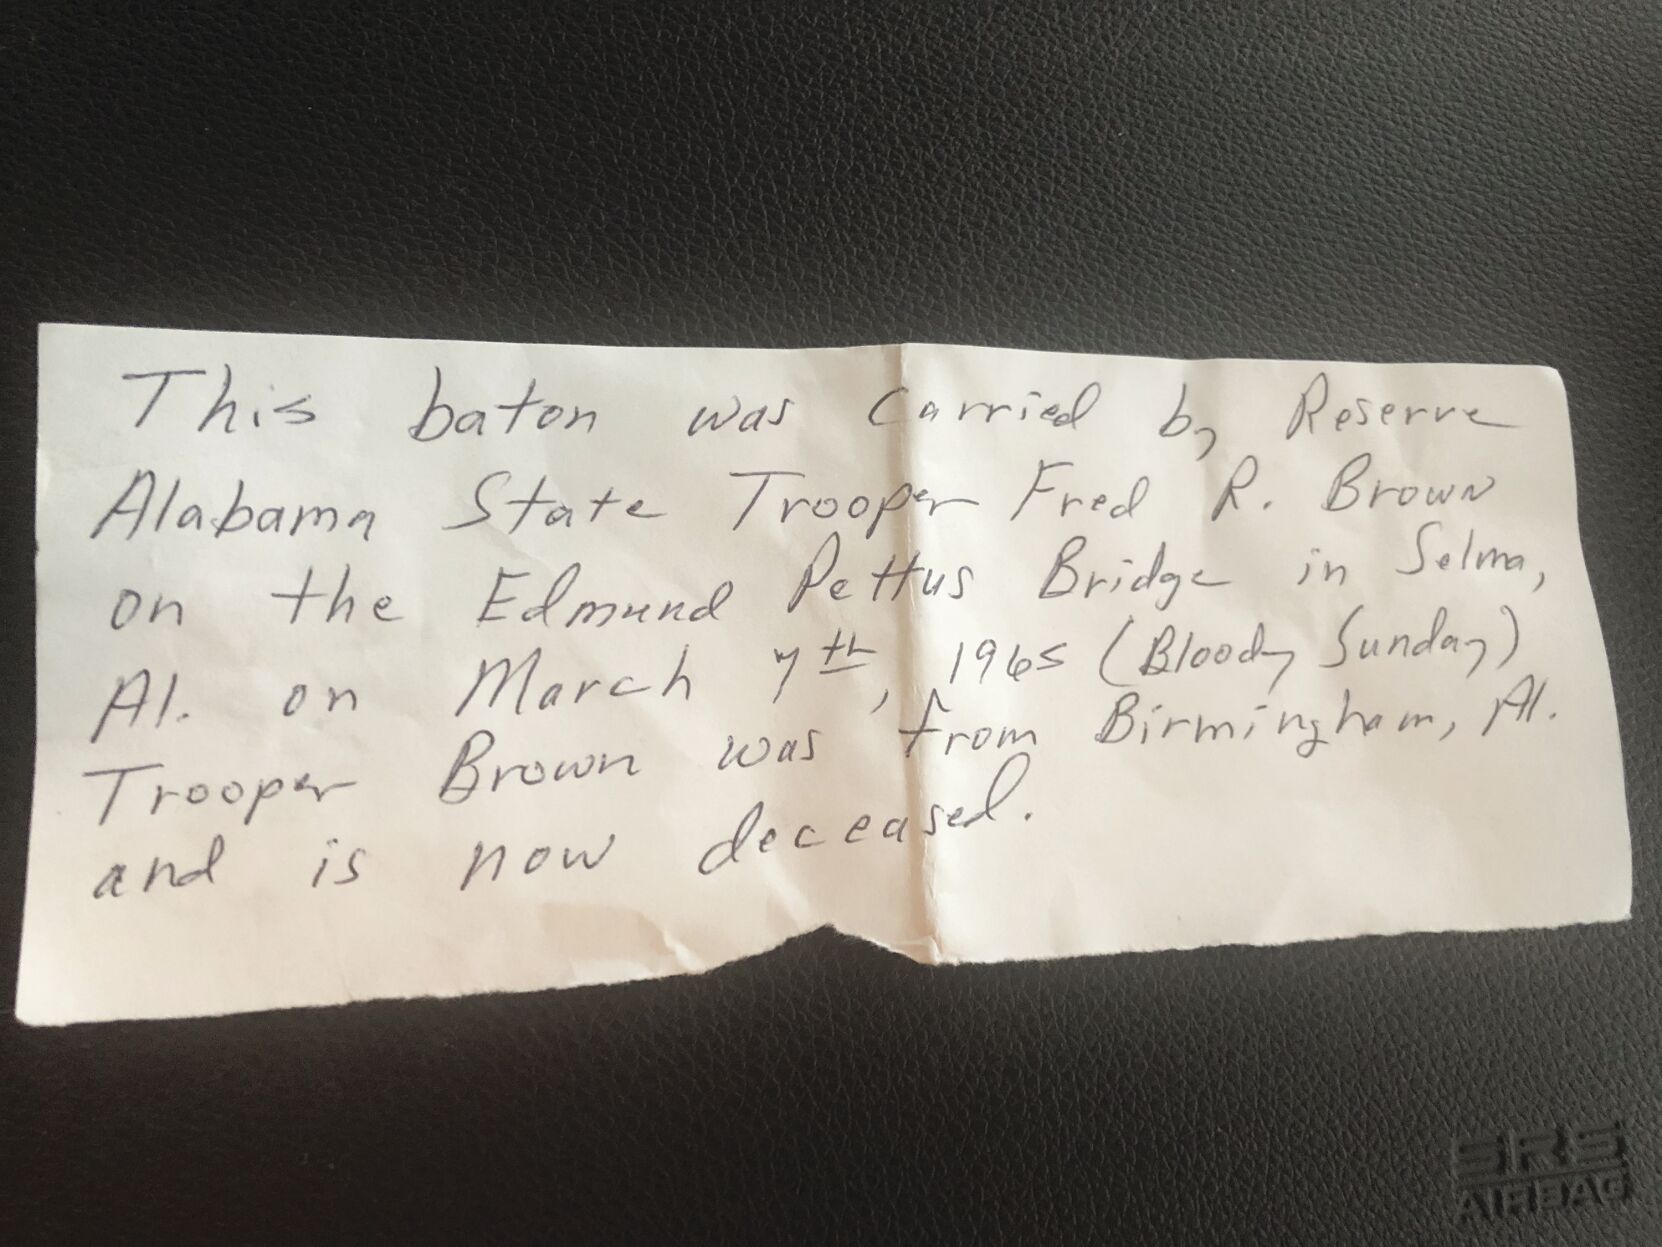 This baton was carried by Reserve
Alabama State Trooper Fred R. Brown
on the Edmund Pettus Bridge in Selma,
Al. on March 7th, 1965 (Bloody Sunday)
Trooper Brown was from Birmingham, Al.
and is now deceased.
SRS
AIRBAG